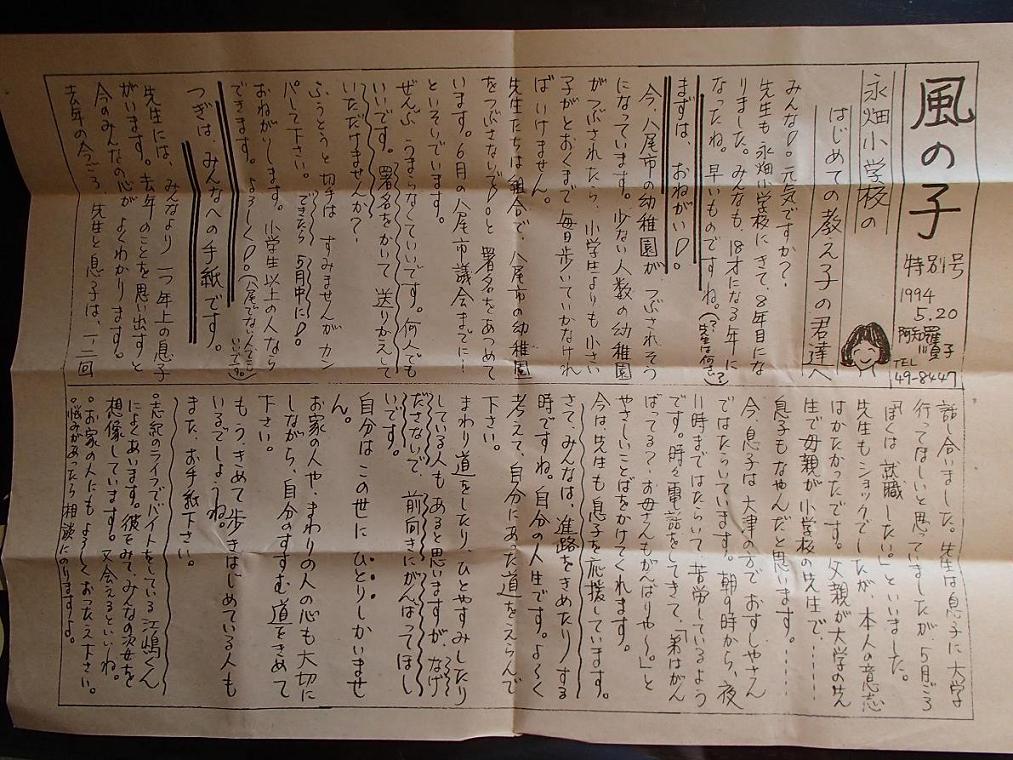 風の子
特別号
1994
5.20
阿知羅
賀子
TEL
49-8447
永畑小学校の
はじめての教え子の君達へ
みんな。元気ですか?
先生も永畑小学校にきて、8年目にな
りました。みんなも、18才になる年に
なったね。早いものですね。(?先生は何才?)
まずは、おねがい。
今、八尾市の幼稚園が、つぶされそう
になっています。少ない人数の幼稚園
がつぶされたら、小学生よりも小さい
子がとおくまで毎日歩いていかなけれ
ばいけません。
先生たちは組合で、八尾市の幼稚園
をつぶさないで。と署名をあつめて
います。6月の八尾市議会までに!
といそいでいます。
ぜんぶ、うまらなくていいです。何人でも
いいです。署名をかいて送りかえして
いただけませんか?
ふうとうと切手は、すみませんがカン
パして下さい。できたら5月中に。
おねがいします。小学生以上の人なら
できます。よろしく。(八尾でない人でもいいです。)
つぎは、みんなへの手紙です。
先生には、みんなより一つ年上の息子
がいます。去年のことを思い出すと
今のみんなの心がよくわかります。
去年の今ごろ、先生と息子は、一、二回
話し合いました。先生は息子に大学
行ってほしいと思っていましたが、5月ごろ
「ぼくは、就職したい。」といいました。
先生もショックでしたが、本人の意志
はかたかったです。父親が大学の先
生で母親が小学校の先生で、……
息子もなやんだと思います。……
今、息子は大津の方で、おすしやさん
ではたらいています。朝の9時から、夜
11時まではたらいて、苦労しているよう
です。時々電話をしてきて、「弟はがん
ばってる?、お母さんもがんばりや〜。」と
やさしいことばをかけてくれます。
今は先生も息子を応援しています。
さて、みんなは、進路をきめたりする
時ですね。自分の人生です。よ〜く
考えて、自分にあった道をえらんで
下さい。
まわり道をしたり、ひとやすみしたり
している人もあると思いますが、なげ
ださないで、前向きにがんばってほし
いです。
自分はこの世にひとりしかいませ
ん。
お家の人や、まわりの人の心も大切に
しながら、自分のすすむ道をきめて
下さい。
もう、きめて歩きはじめている人も
いるでしょうね。
また、お手紙下さい。
。志紀のライフでバイトをしている江嶋くん
によくあいます。彼をみて、みんなの姿を
想像しています。又会えるといいね。
。お家の人にもよろしくおつたえ下さい。
。悩みがあったら相談にのりますよ。